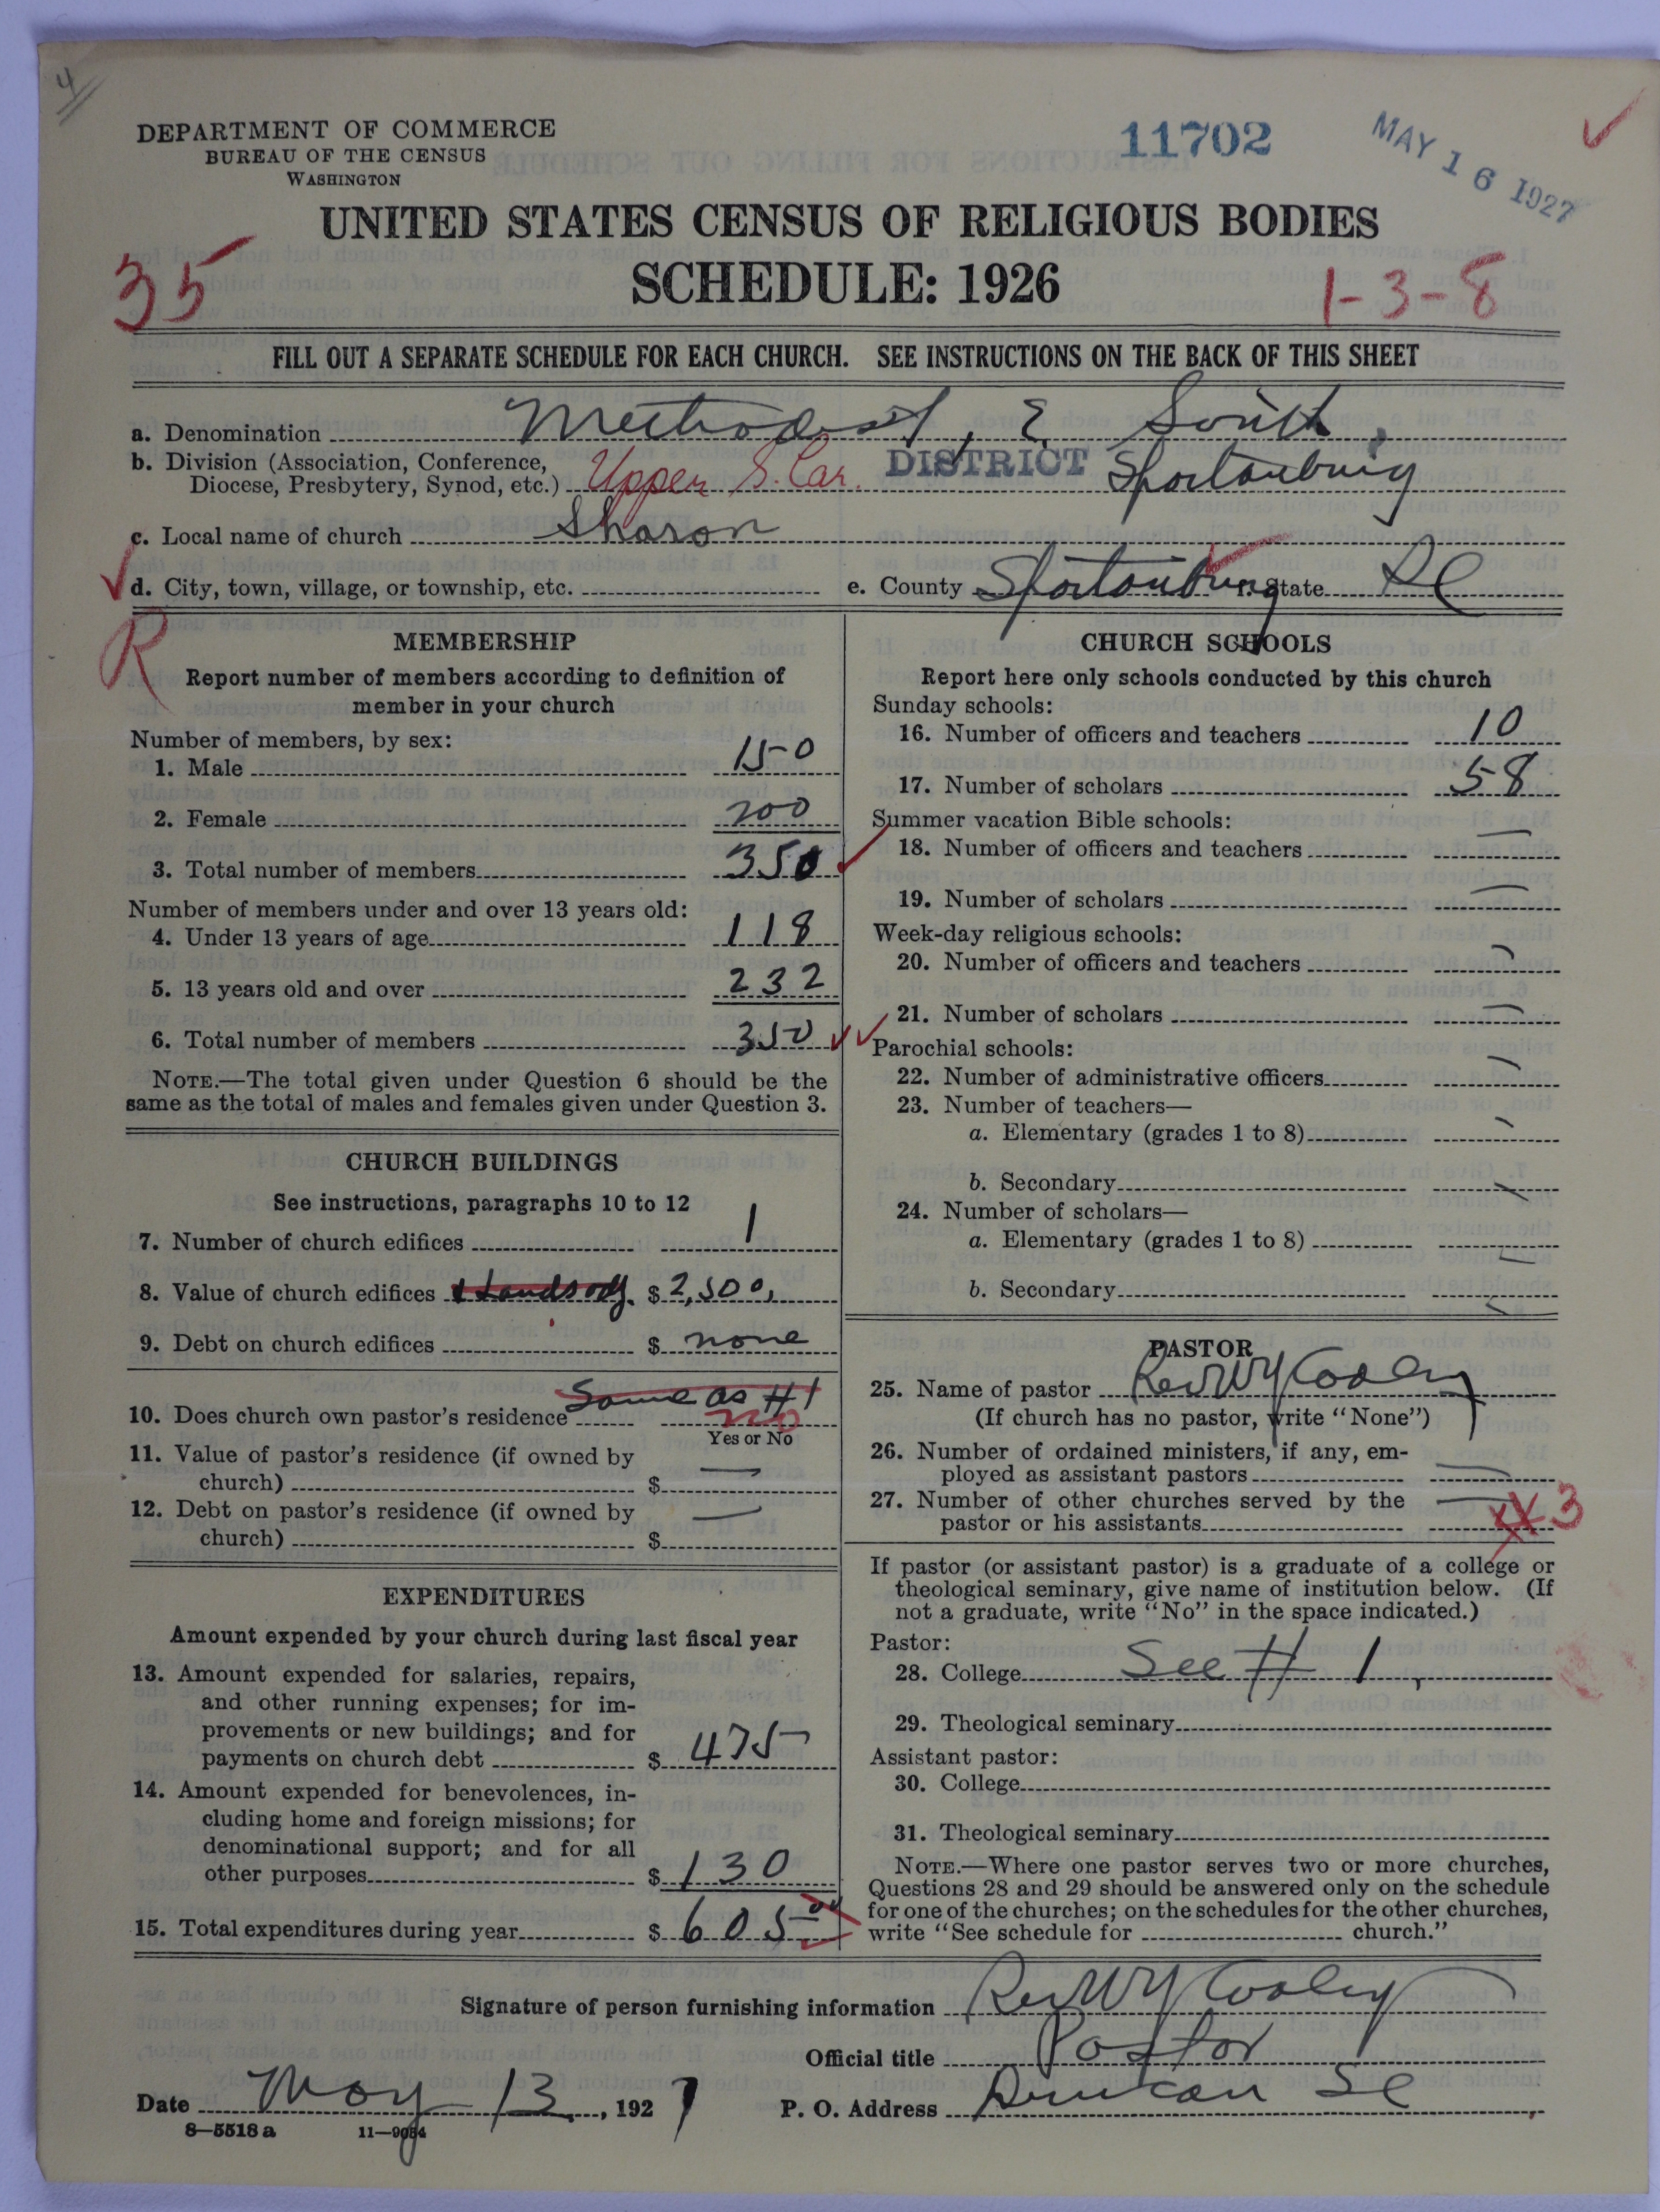 4
DEPARTMENT OF COMMERCE
BUREAU OF THE CENSUS
WASHINGTON
11702
MAY 16 1927
UNITED STATES CENSUS OF RELIGIOUS BODIES
SCHEDULE: 1926
35
1-3-8
FILL OUT A SEPARATE SCHEDULE FOR EACH CHURCH. SEE INSTRUCTIONS ON THE BACK OF THIS SHEET
a. Denomination Methodist, E. South,
b. Division (Association, Conference,
Diocese, Presbytery, Synod, etc.) Upper S. Car. DISTRICT Spartanburg
c. Local name of church Sharon
d. City, town, village, or township, etc. e. County Spartanburg f. State SC
R
MEMBERSHIP
Report number of members according to definition of
member in your church
Number of members, by sex:
1. Male 150
2. Female 200
3. Total number of members 350
Number of members under and over 13 years old:
4. Under 13 years of age 118
5. 13 years old and over 232
6. Total number of members 350
NOTE.—The total given under Question 6 should be the
same as the total of males and females given under Question 3.
CHURCH BUILDINGS
See instructions, paragraphs 10 to 12
7. Number of church edifices 1
8. Value of church edifices $2,500,
9. Debt on church edifices $ none
Same as #1
10. Does church own pastor's residence no
Yes or No
11. Value of pastor's residence (if owned by
church) $ —
12. Debt on pastor's residence (if owned by
church) $ —
EXPENDITURES
Amount expended by your church during last fiscal year
13. Amount expended for salaries, repairs,
and other running expenses; for im-
provements or new buildings; and for
payments on church debt $ 475
14. Amount expended for benevolences, in-
cluding home and foreign missions; for
denominational support; and for all
other purposes $ 130
15. Total expenditures during year $ 605.00
CHURCH SCHOOLS
Report here only schools conducted by this church
Sunday schools:
16. Number of officers and teachers 10
17. Number of scholars 58
Summer vacation Bible schools:
18. Number of officers and teachers —
19. Number of scholars —
Week-day religious schools:
20. Number of officers and teachers —
21. Number of scholars —
Parochial schools:
22. Number of administrative officers —
23. Number of teachers—
a. Elementary (grades 1 to 8) —
b. Secondary —
24. Number of scholars—
a. Elementary (grades 1 to 8) —
b. Secondary —
PASTOR
25. Name of pastor Rev W Y Cooley
(If church has no pastor, write "None")
26. Number of ordained ministers, if any, em-
ployed as assistant pastors —
27. Number of other churches served by the
pastor or his assistants — 3
If pastor (or assistant pastor) is a graduate of a college or
theological seminary, give name of institution below. (If
not a graduate, write "No" in the space indicated.)
Pastor:
28. College See # 1,
29. Theological seminary
Assistant pastor:
30. College
31. Theological seminary
NOTE.—Where one pastor serves two or more churches,
Questions 28 and 29 should be answered only on the schedule
for one of the churches; on the schedules for the other churches,
write "See schedule for church."
Signature of person furnishing information Rev W Y Cooley
Official title Pastor
Date May 13, 1927 P. O. Address Duncan SC
8—5518 a 11—9034